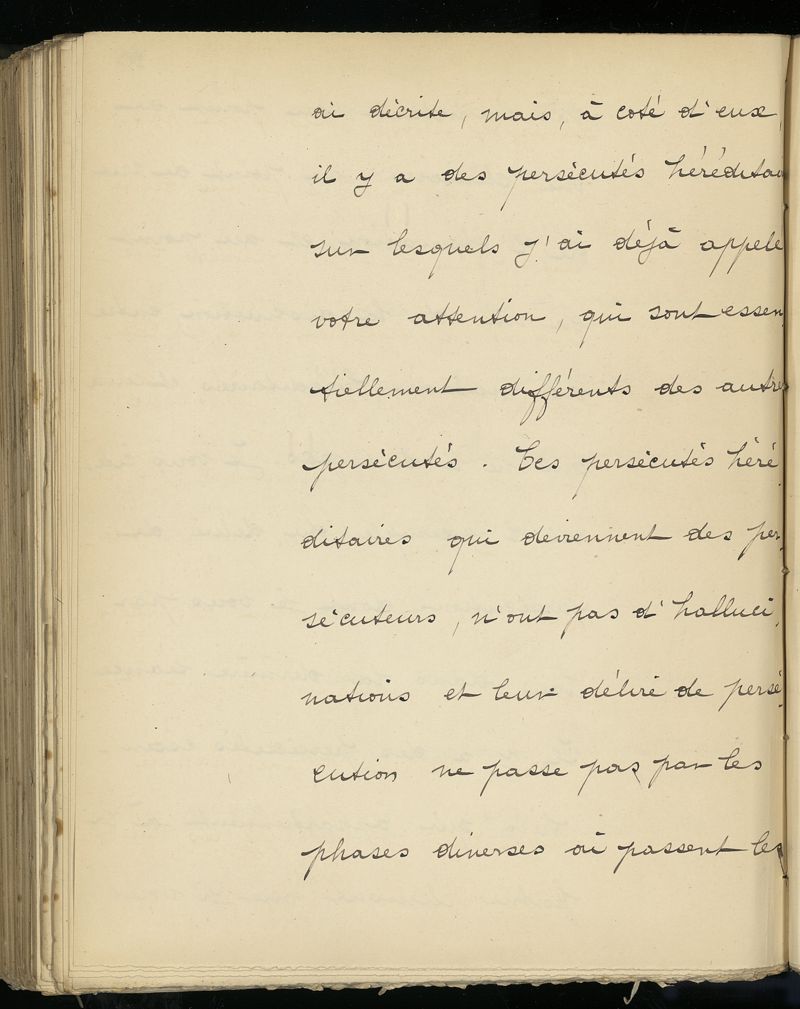 ai décrite, mais, à coté d'eux,
il y a des persécutés héréditai
sur lesquels j'ai déjà appelé
votre attention, qui sont essen
tiellement différents des autres
persécutés. Ces persécutés héré
ditaires qui deviennent des per
sécuteurs, n'ont pas d'halluci
nations et leur délire de persé
cution ne passe pas par les
phases diverses où passent les